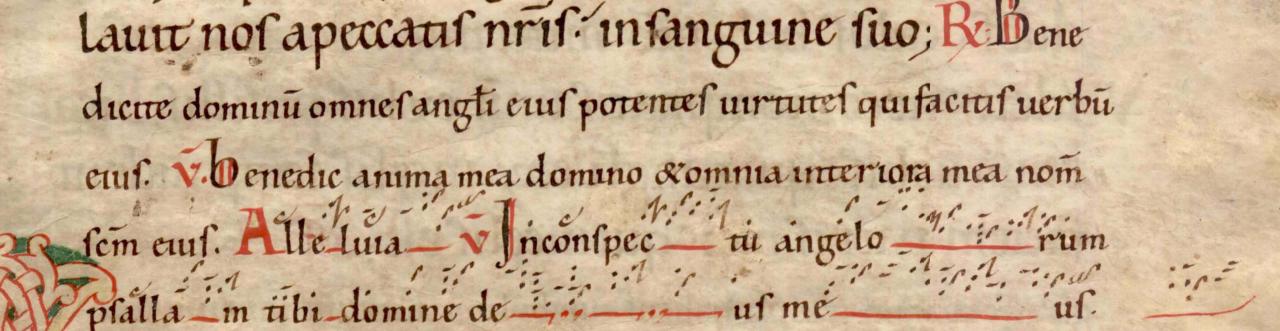 lauit nos apeccatis nr̄is. insanguine suo; R℣ Bene
dicite dominū omnes angl̄i eius potentes uirtutes quifacitis uerbū
eius. v̄. Benedic anima mea domino &omnia interiora mea nom̄
scm̄ eius. Alleluia v̄ Inconspectu angelorum
psallam tibi domine deus meus.